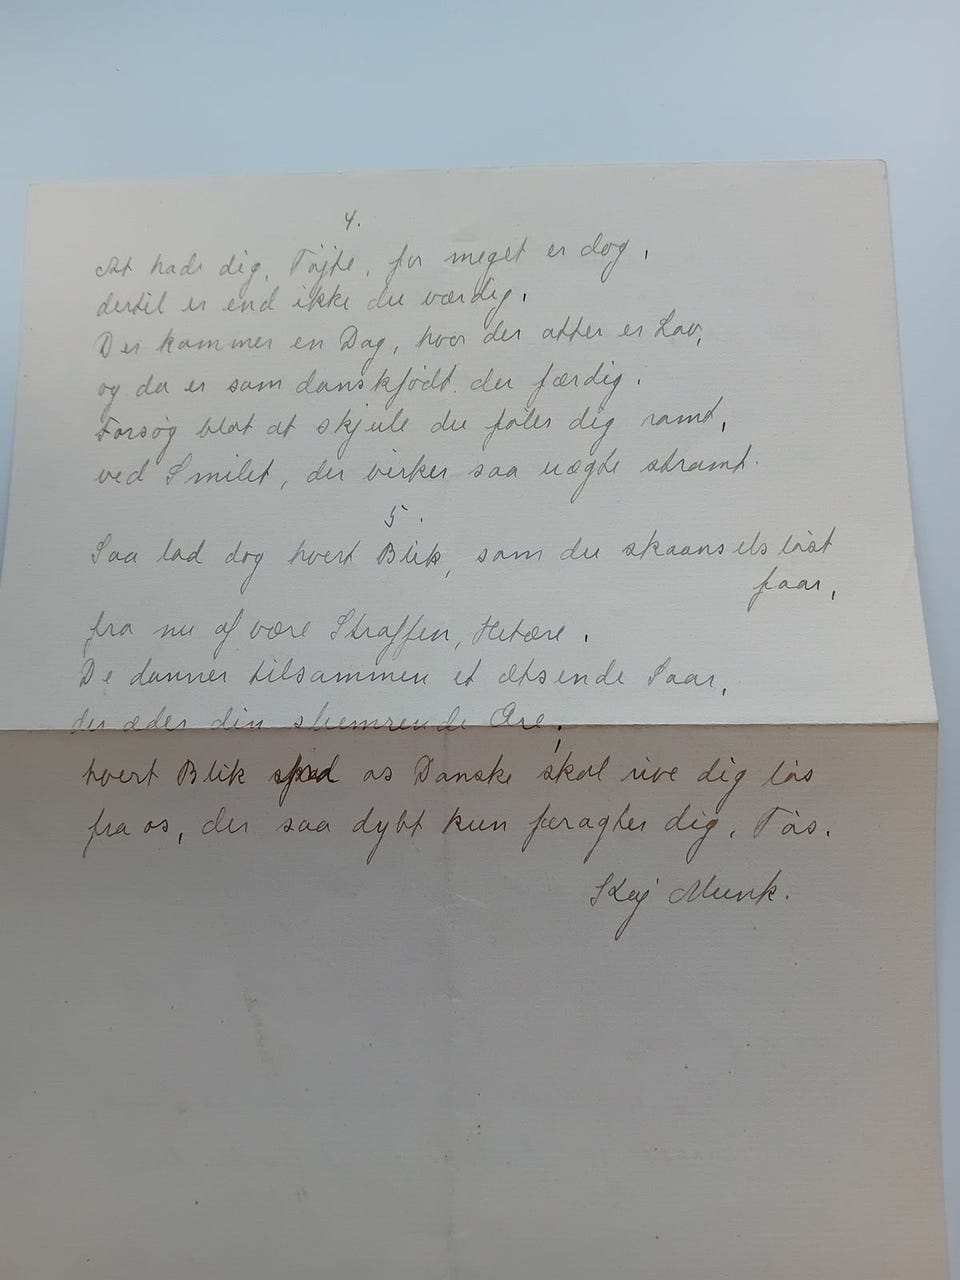 4.
At hade dig, Tøjte, for meget er dog,
dertil er end ikke du værdig.
Der kommer en Dag, hvor der atter er Lov,
og da er som danskfødt du færdig.
Forsøg blot at skjule du føler dig ramt,
ved Smilet, der virker saa uægte stramt.
5.
Saa lad dog hvert Blik, som du skaanselsløst
faar,
fra nu af være Straffen, Hetære.
De danner tilsammen et ætsende Saar,
der æder din Ære,
hvert Blik os Danske skal rive dig løs
fra os, der saa dybt kun foragter dig, Tøs.
Kaj Munk.